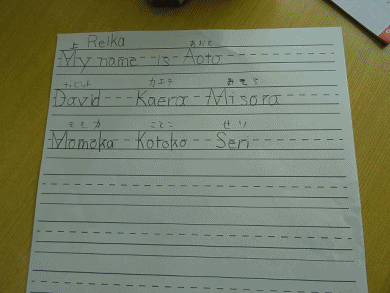 Reika
あおと
My name is Aoto
デビット カエラ みそら
David Kaera Misora
モモカ ことこ せり
Momoka Kotoko Seri